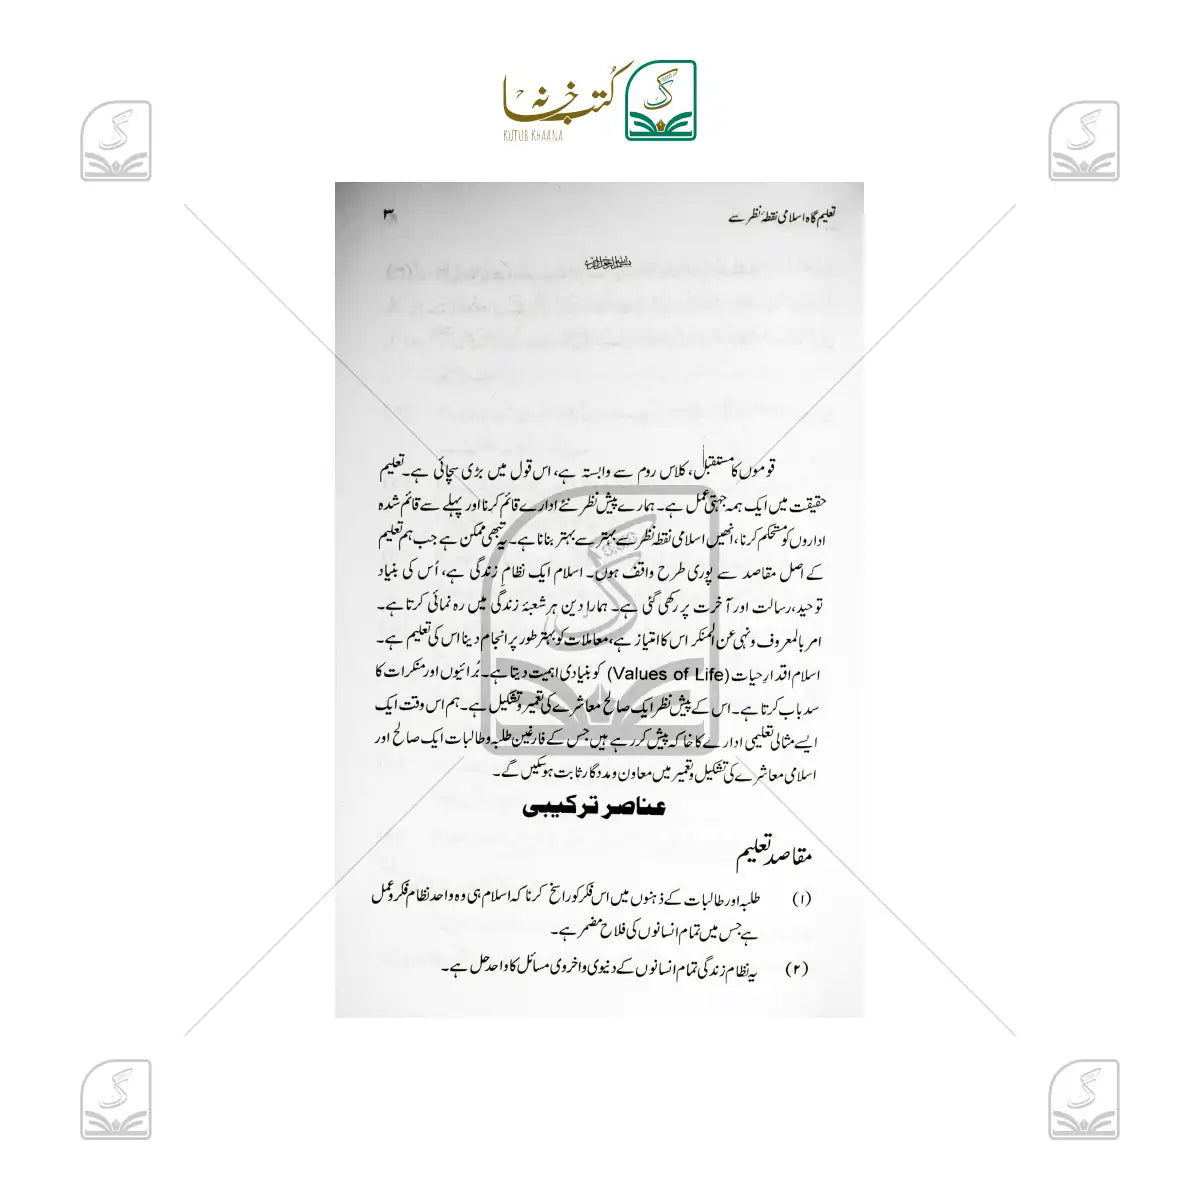 کتب خانہ
KUTUB KHAANA
تعلیم گاہ اسلامی نقطۂ نظر سے
۳
قوموں کا مستقبل، کلاس روم سے وابستہ ہے، اس قول میں بڑی سچائی ہے۔ تعلیم
حقیقت میں ایک ہمہ جہتی عمل ہے۔ ہمارے پیش نظر نئے ادارے قائم کرنا اور پہلے سے قائم شدہ
اداروں کو مستحکم کرنا، انھیں اسلامی نقطۂ نظر سے بہتر سے بہتر بنانا ہے۔ یہ تبھی ممکن ہے جب ہم تعلیم
کے اصل مقاصد سے پوری طرح واقف ہوں۔ اسلام ایک نظامِ زندگی ہے، اُس کی بنیاد
توحید، رسالت اور آخرت پر رکھی گئی ہے۔ ہمارا دین ہر شعبۂ زندگی میں رہ نمائی کرتا ہے۔
امر بالمعروف و نہی عن المنکر اس کا امتیاز ہے، معاملات کو بہتر طور پر انجام دینا اس کی تعلیم ہے۔
اسلام اقدارِ حیات (Values of Life) کو بنیادی اہمیت دیتا ہے۔ بُرائیوں اور منکرات کا
سدباب کرتا ہے۔ اس کے پیش نظر ایک صالح معاشرے کی تعمیر و تشکیل ہے۔ ہم اس وقت ایک
ایسے مثالی تعلیمی ادارے کا خاکہ پیش کر رہے ہیں جس کے فارغین طلبہ و طالبات ایک صالح اور
اسلامی معاشرے کی تشکیل و تعمیر میں معاون و مددگار ثابت ہو سکیں گے۔
عناصر ترکیبی
مقاصد تعلیم
(۱) طلبہ اور طالبات کے ذہنوں میں اس فکر کو راسخ کرنا کہ اسلام ہی وہ واحد نظام فکر و عمل
ہے جس میں تمام انسانوں کی فلاح مضمر ہے۔
(۲) یہ نظام زندگی تمام انسانوں کے دنیوی و اخروی مسائل کا واحد حل ہے۔